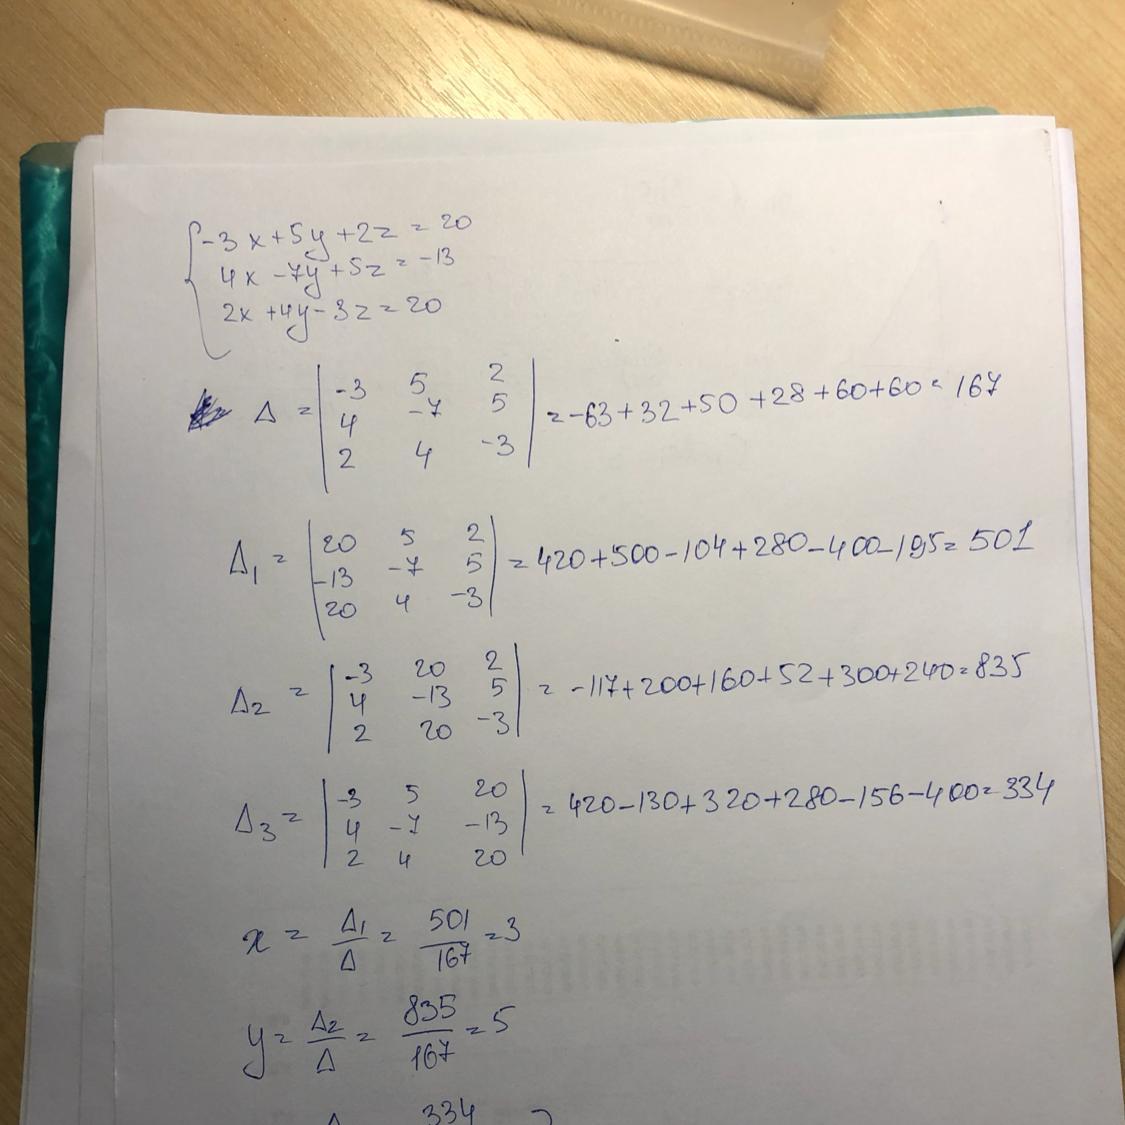 -3x+5y+2z=20
4x-7y+5z=-13
2x+4y-3z=20
Δ = | -3 5 2 | 4 -7 5 | 2 4 -3 | =-63+32+50+28+60+60=167
Δ1 = | 20 5 2 | -13 -7 5 | 20 4 -3 | =420+500-104+280-400-195=501
Δ2 = | -3 20 2 | 4 -13 5 | 2 20 -3 | = -117+200+160+52+300+240=835
Δ3 = | -3 5 20 | 4 -7 -13 | 2 4 20 | =420-130+320+280-156-400=334
x = Δ1/Δ = 501/167 =3
y = Δ2/Δ = 835/167 =5
334